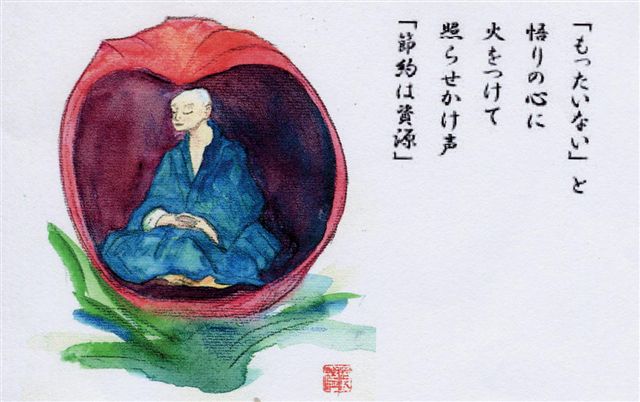 「もったいない」と
悟りの心に
火をつけて
照らせかけ声
「節約は資源」